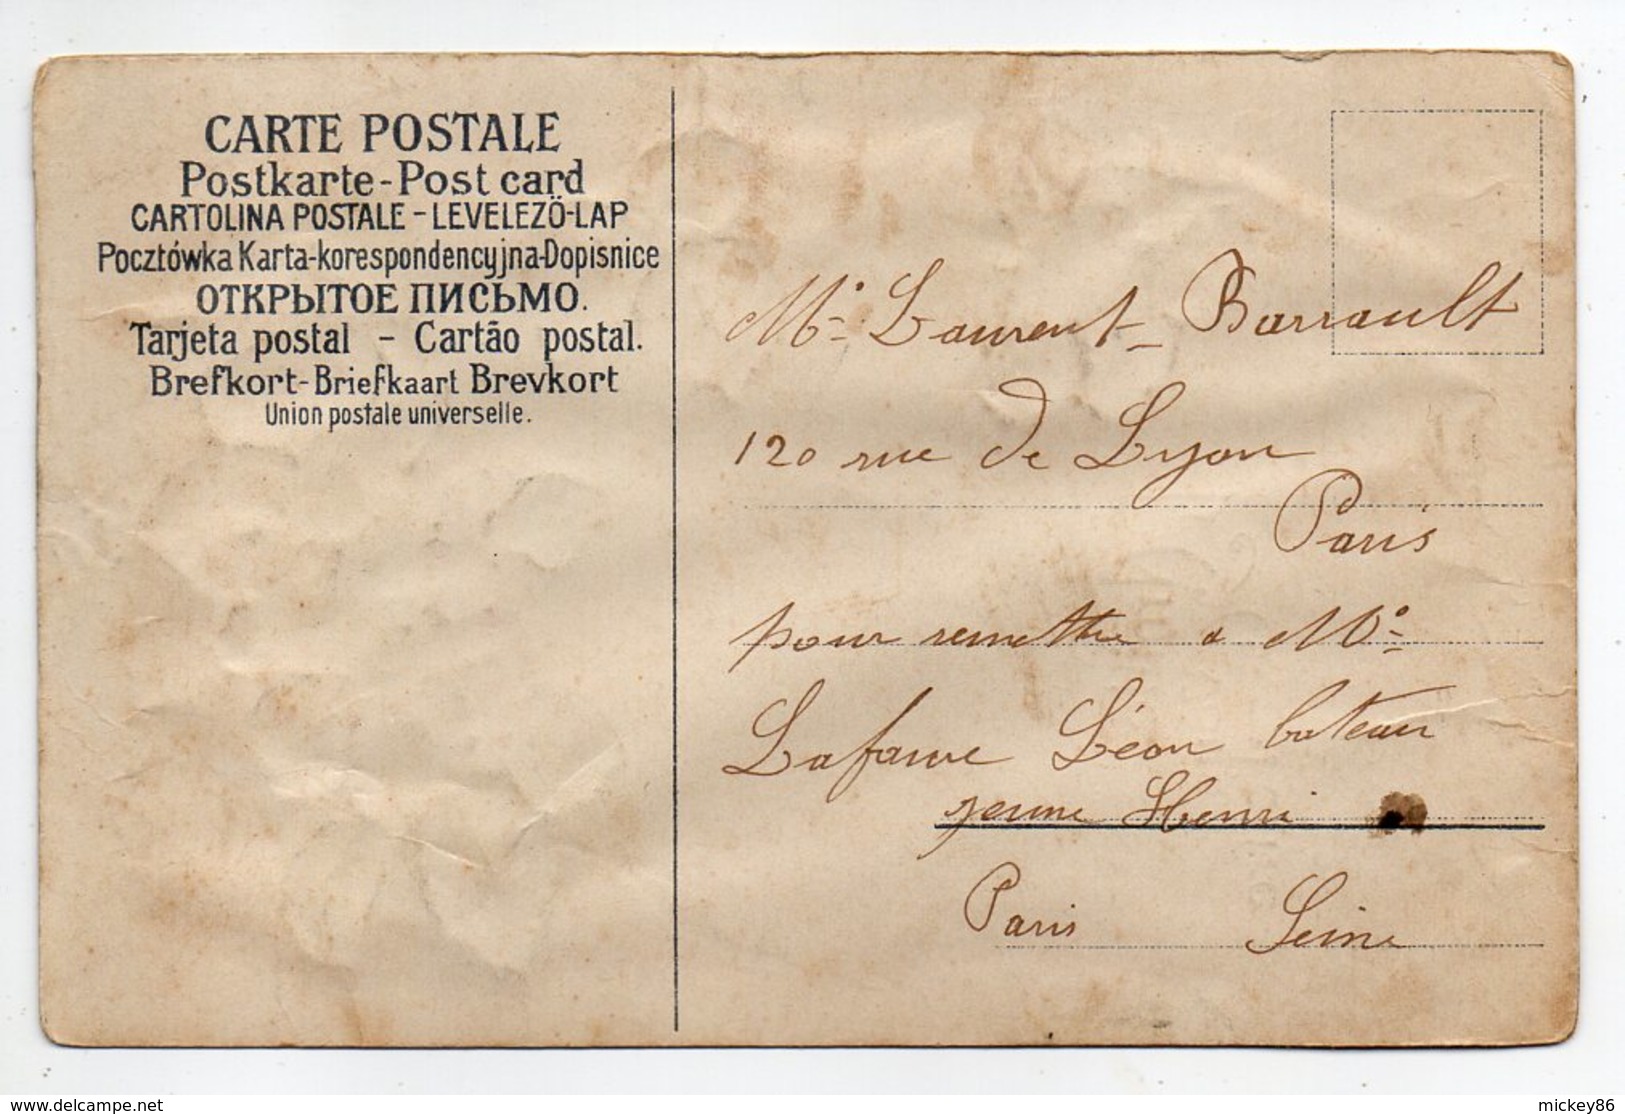 CARTE POSTALE
Postkarte-Post card
CARTOLINA POSTALE - LEVELEZÖ-LAP
Pocztówka Karta-korespondencyjna-Dopisnice
ОТКРЫТОЕ ПИСЬМО.
Tarjeta postal - Cartão postal.
Brefkort-Briefkaart Brevkort
Union postale universelle.
Mr Laurent Barrault
120 rue de Lyon
Paris
pour remettre a Mr
Léon bateau
jeune Henri
Paris Seine
www.delcampe.net
mickey86